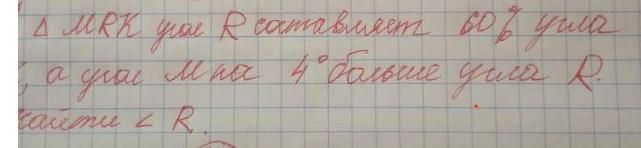 Δ MRK угол R составляет 60% угла
, а угол M на 4° больше угла R.
найти < R.